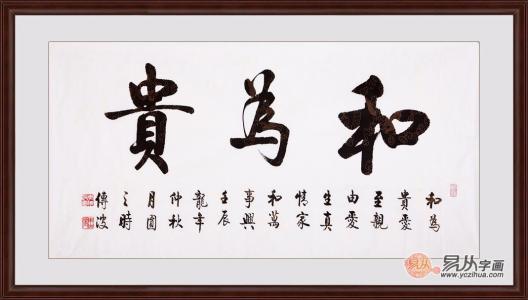 和為貴
和為
貴愛
至親
由愛
生真
情家
和萬
事興
壬辰
龍年
仲秋
月圓
之時
傳波
易从字画
www.yczihua.com